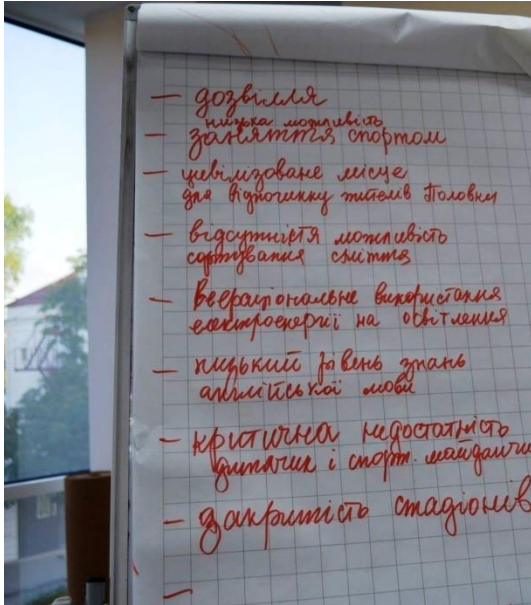 — дозвілля
низька можливість
— заняття спортом
— цивілізоване місце
для відпочинку жителів Половки
— відсутністя можливість
сортування сміття
— Веераціональне використання
електроенергії на освітлення
— низький рівень знань
англійської мови
— критична недостатність
дитячих і спорт. майданчик
— закритість стадіонів
—